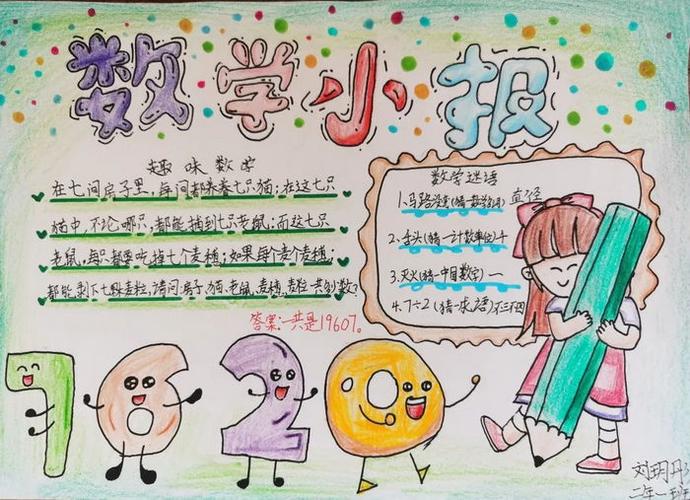 数学小报
趣味数学
在七间房子里,每间都养着七只猫;在这七只
猫中,不论哪只,都能捕到七只老鼠;而这七只
老鼠,每只都要吃掉七个麦穗;如果每个麦穗
都能剥下七颗麦粒,请问:房子、猫、老鼠、麦穗、麦粒一共列数?
答案:一共是19607。
数学谜语
1.马路没弯(猜一数学名词) 直径
2.舌头(猜一计数单位)千
3.灭火(猜一中国数字)一
4.7÷2(猜一成语)不三不四
7 6 2 0
刘玥丹
二年一班